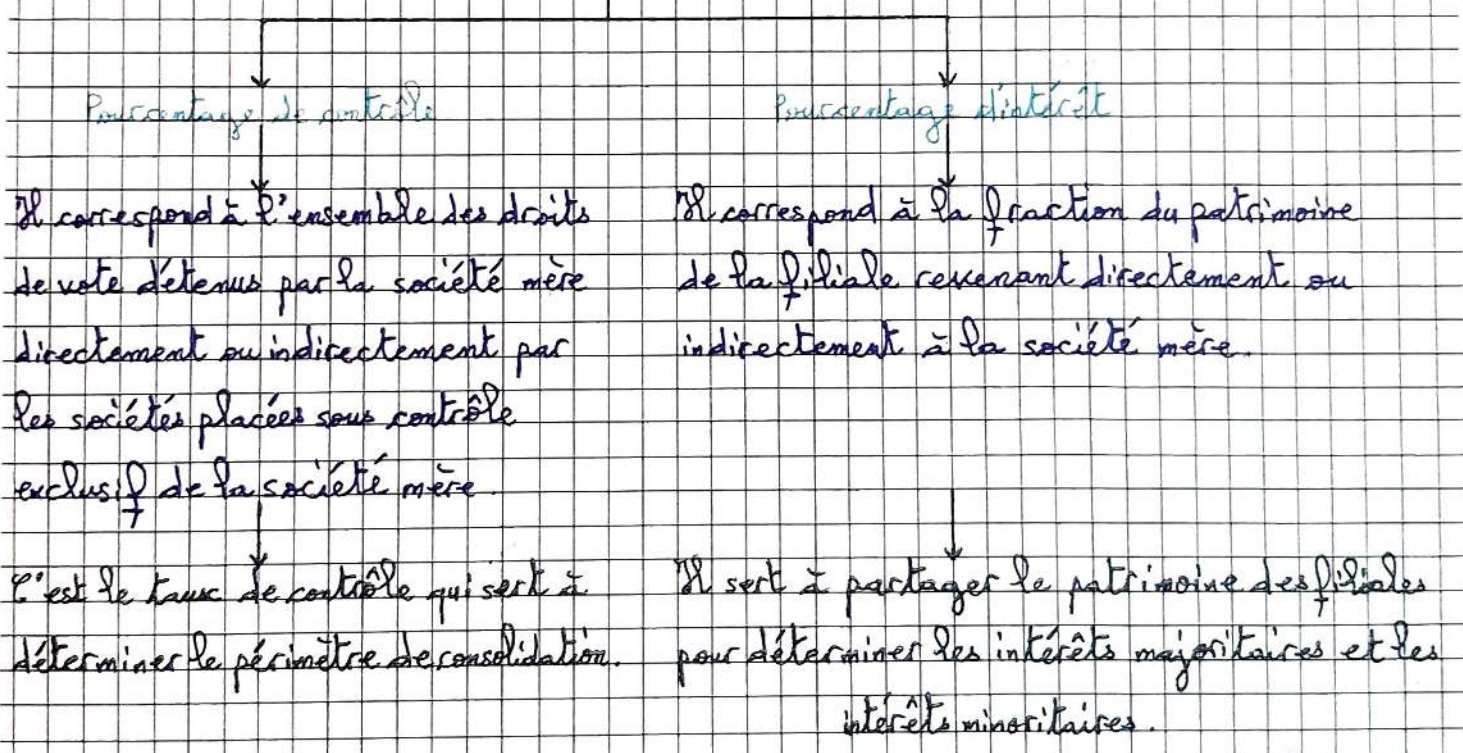 Pourcentage de contrôle
Il correspond à l'ensemble des droits
de vote détenus par la société mère
directement ou indirectement par
les sociétés placées sous contrôle
exclusif de la société mère.
C'est le taux de contrôle qui sert à
déterminer le périmètre de consolidation.
Pourcentage d'intérêt
Il correspond à la fraction du patrimoine
de la filiale revenant directement ou
indirectement à la société mère.
Il sert à partager le patrimoine des filiales
pour déterminer les intérêts majoritaires et les
intérêts minoritaires.